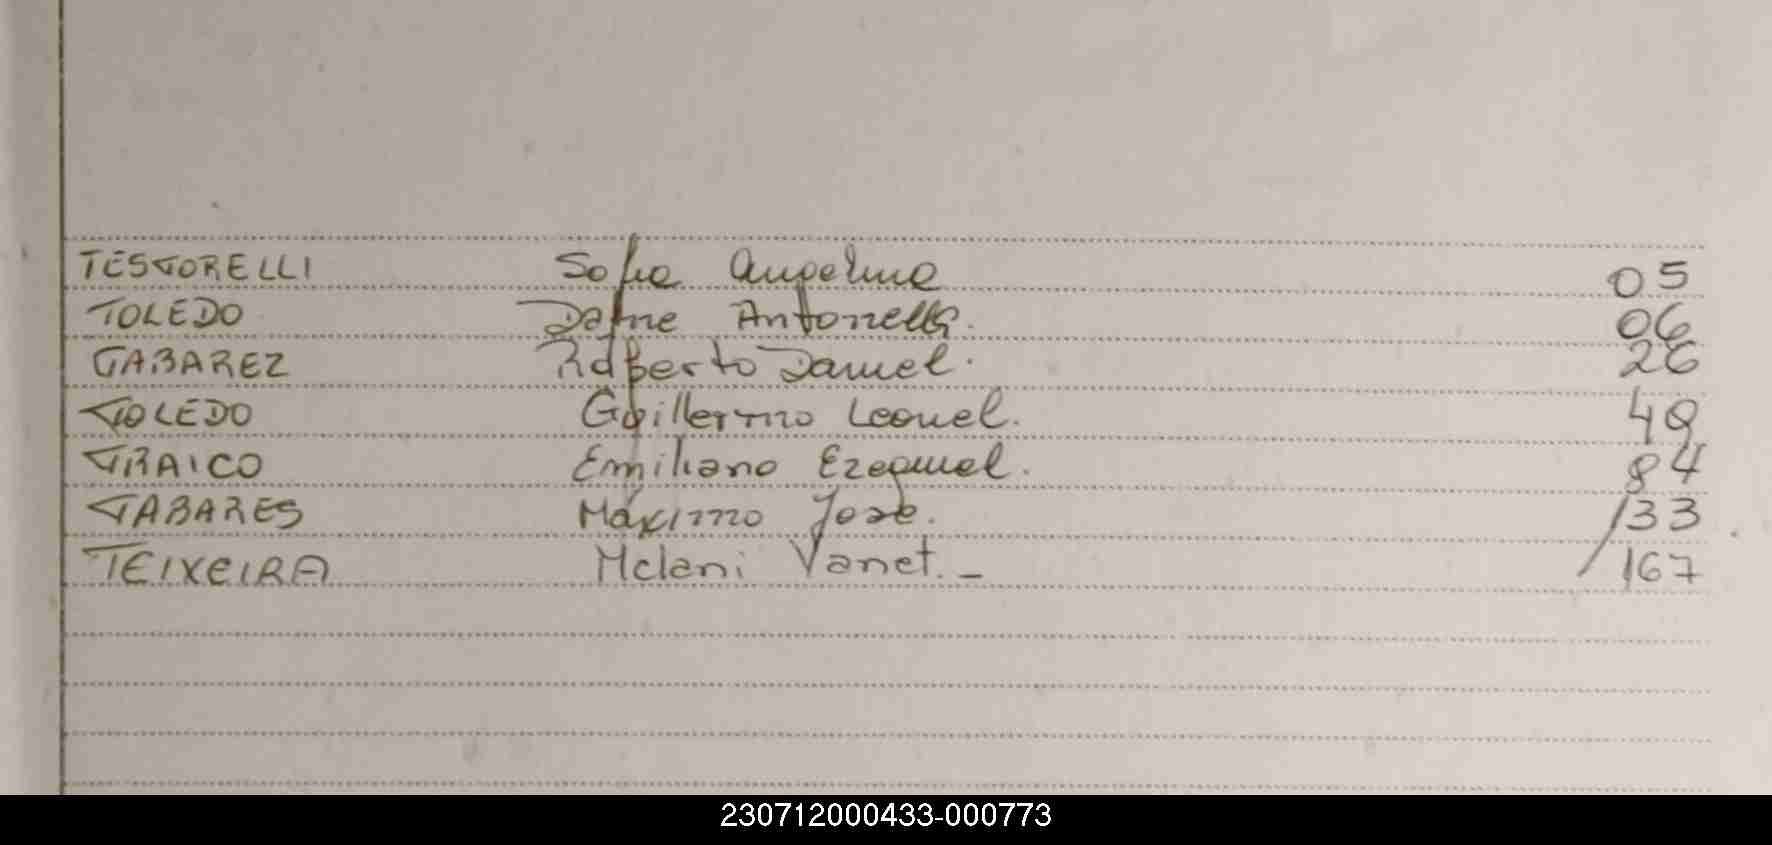 TESTORELLI Sofia Angelina 05
TOLEDO Dafne Antonella. 06
TABAREZ Roberto Daniel. 26
TOLEDO Guillermo Leonel. 49
TRAICO Emiliano Ezequiel. 84
TABARES Máximo José. 133
TEIXEIRA Melani Yanet. - 167
230712000433-000773